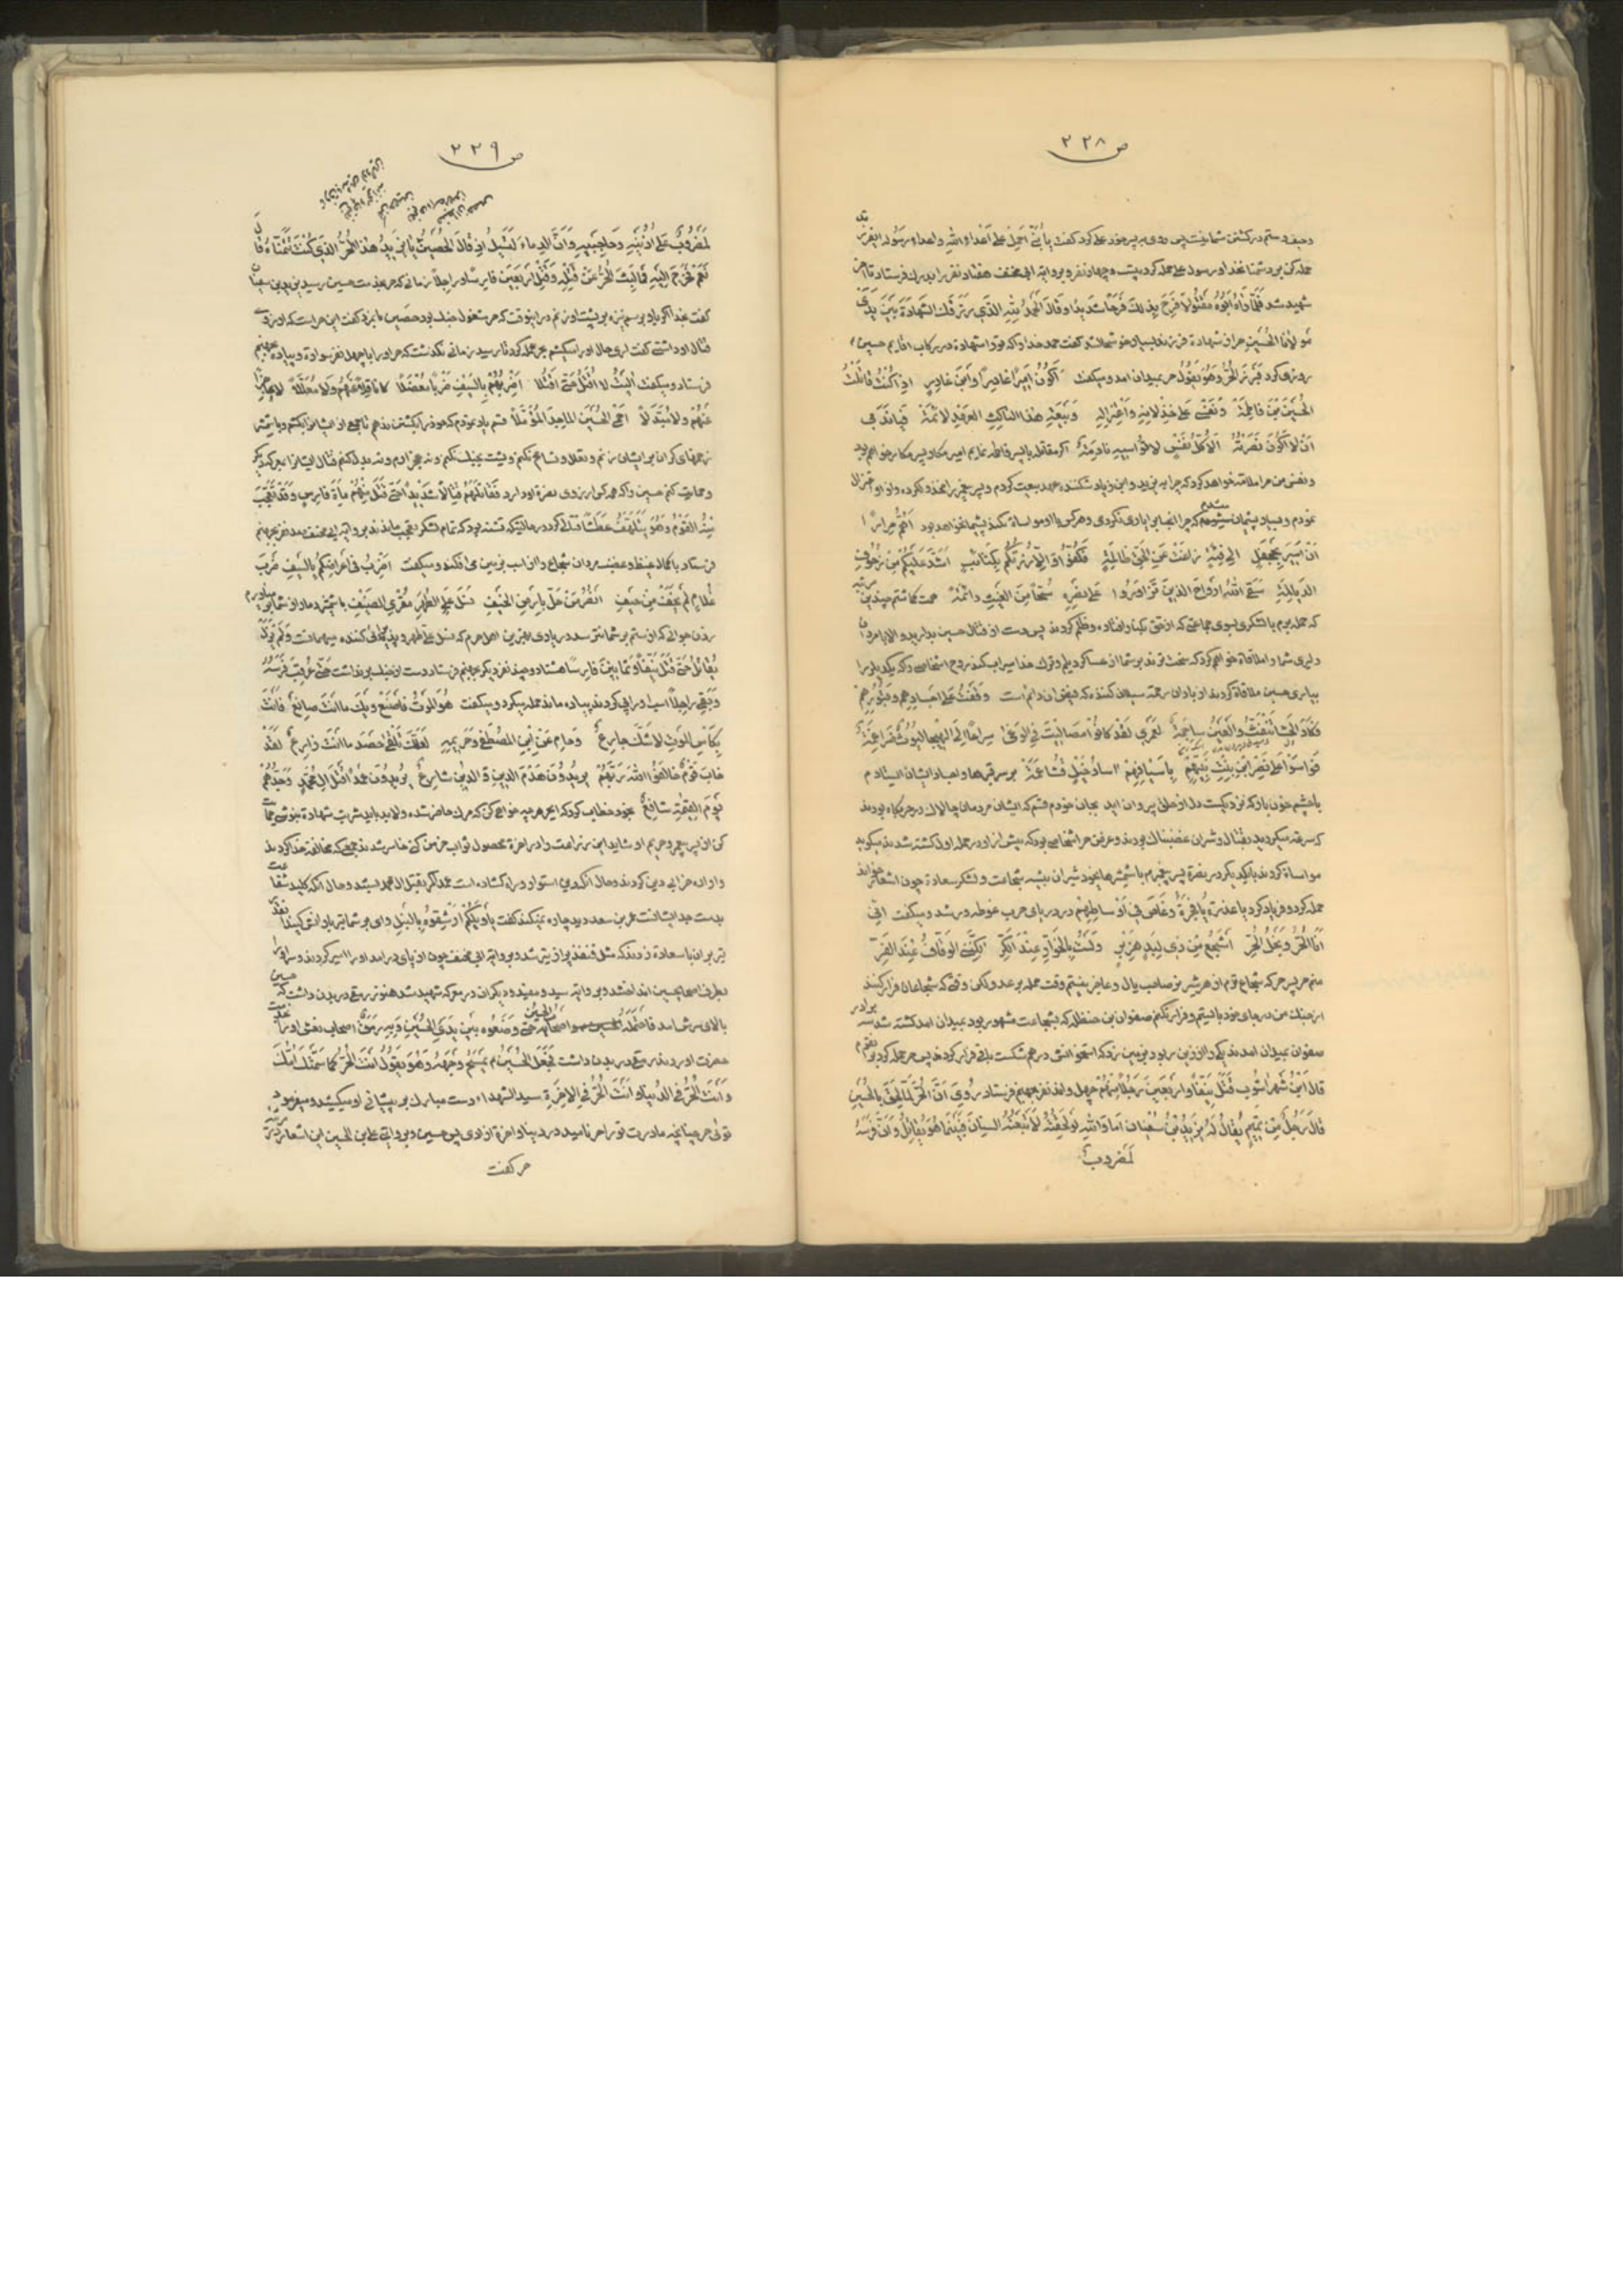 ص ٢٢٨
وحیف و ستم در کشتن شما نیست پس روی به پسر خود علی کرد گفت یا بُنَیَّ اَحمِل عَلی اَعداءِ اللهِ و اعداءِ رَسُولِه ای فرزند
حمله کن بر دشمنان خدا و رسول علی حمله کرد بیست و چهار نفر و بروایة ابی مخنف هفتاد نفر را بدرک فرستاد تا آخر
شهید شد فَلَمّا رَاٰهُ اَبُوهُ مَقتُولاً فَرِحَ بِذٰلِکَ فَرَحاً شَدیداً وَ قالَ اَلحَمدُ لِلّٰهِ الَّذی رَزَقَکَ الشَّهادَةَ بَینَ یَدَی
مَولانَا الحُسَینِ حر از شهادة فرزند خوشحال شد گفت حمد خدا را که تو را شهادة در رکاب اقایم حسین
روزی کرد ثُمَّ بَرَزَ الحُرُّ وَ هُوَ یَقُولُ حر بمیدان امد و میگفت اَکُونُ اَمیراً غادِراً وَ ابنَ غادِرٍ اِذا کُنتُ قاتَلتُ
الحُسَینَ بنَ فاطِمَة وَ نَفسی عَلی خِذلانِهِ وَ اعتِزالِهِ وَ بَیعَةِ هٰذَا النّاکِثِ العَهدِ لائِمَة فَیا نَدَمی
اَن لا اَکُونَ نَصَرتُهُ اَلا کُلُّ نَفسٍ لا تُواسیهِ نادِمَة اگر مقاتله با پسر فاطمه نمایم امیر مکار و پسر مکار خواهم بود
و نفس من مرا ملامة خواهد کرد که چرا به یزید و ابن زیاد شکننده عهد بیعت کردم و پسر پیغمبر را مخذول کرده و از او اعتزال
نمودم و بسیار پشیمان میشوم که چرا انجناب را یاری نکردی و هر کس با او مواساة نکند پشیمان خواهد بود اَهُمُّ مِراراً
اَن اَسیرَ بِجَحفَلٍ اِلی فِئَةٍ زاغَت عَنِ الحَقِّ ظالِمَةٍ فَکُفُّوا وَ اِلّا زُرتُکُم بِکَتائِبٍ اَشَدَّ عَلَیکُم مِن زُحُوفِ
الدَّیالِمَةِ سَقَی اللهُ اَرواحَ الَّذینَ تَوازَرُوا عَلی نَصرِهِ سُحّاً مِنَ الغَیثِ دائِمَة همت گماشتم چندین مرتبه
که حمله برم با لشکری بسوی جماعتی که از حق بکنار افتاده و ظلم کردند پس دست از قتال حسین بدارید و الا با مردان
دلیری شما را ملاقاة خواهم کرد که سخت ترند بر شما از عساکر دیلم و ترک خدا سیراب کند روح اشخاصی را که یکدیگر را
بیاری حسین ملاقاة کردند از باران رحمة سیلان کننده که فیض ان دائم است وَقَفتُ عَلی اَجسادِهِم وَ قُبُورِهِم
فَکادَ الحَشا تَنفَتُّ وَ العَینُ ساجِمَة لَعَمری لَقَد کانُوا مَصالیتَ فِی الوَغی سِراعاً اِلَی الهَیجا لُیُوثٌ ضَراغِمَة
تَواسَوا عَلی نَصرِ ابنِ بِنتِ نَبِیِّهِم بِاَسیافِهِم اسادُ خَیلٍ قَشاعِمَة بر سر قبرها و اجساد ایشان ایستادم
با چشم خون بار که نزدیکست دل از حلق بیرون اید بجان خودم قسم که ایشان مردمان چالاک در حربگاه بودند
که سرعة میکردند بقتال و شیران غضبناک بودند و غرض حر اشخاصی بود که پیش از او در حمله اول کشته شدند میگوید
مواساة کردند با یکدیگر در نصرة پسر پیغمبرم با شمشیرهای خود شیران بیشه شجاعت و لشکر سعادة چون اشعار خواند
حمله کرد و فریاد کرد یا عُذرَةُ یا فَجَرَةُ وَ غاصَ فی اَوساطِهِم در دریای حرب غوطه ور شد و میگفت اِنّی
اَنَا الحُرُّ وَ نَجلُ الحُرِّ اَشجَعُ مِن ذی لِبَدٍ هِزَبرٍ وَ لَستُ بِالخَوّارِ عِندَ الکَرِّ لٰکِنَّنِی الوَقّافُ عِندَ الفَرِّ
منم حر پسر حر که شجاع ترم از هر شیر نر صاحب یال و عاجز نیستم وقت حمله بر عدو لکن وقتی که شجاعان فرار کنند
از جنگ من در جای خود بایستم و فرار نکنم صفوان بن حنظله که بشجاعت مشهور بود بمیدان امد کشته شد سه برادر
صفوان بمیدان امدند یکی را از زین ربود بزمین زد که استخوانش در هم شکست باقی فرار کردند پس حر حمله کرد بر قوم
قالَ ابنُ شَهر اٰشُوب قَتَلَ نَیِّفاً وَ اَربَعینَ رَجُلاً مِنهُم چهل و اند نفر بجهنم فرستاد رُوِیَ اَنَّ الحُرَّ لَمّا لَحِقَ بِالحُسَینِ
قالَ رَجُلٌ مِن تَمیمٍ یُقالُ لَهُ یَزیدُ بنُ سُفیان اَما وَ اللهِ لَو لَحِقتُهُ لَاَتبَعتُهُ السِّنانَ فَبَینَما هُوَ یُقاتِلُ وَ اِنَّ فَرَسَهُ
لَمَضروبٌ
ص ٢٢٩
لَمَضرُوبٌ عَلی اُذُنَیهِ وَ حاجِبَیهِ وَ اَنَّ الدِّماءَ لَتَسیلُ اِذ قالَ الحُصَینُ یا یَزیدُ هٰذَا الحُرُّ الَّذی کُنتَ تَتَمَنّاهُ قالَ
نَعَم فَخَرَجَ اِلَیهِ فَما لَبِثَ الحُرُّ حَتّی قَتَلَهُ وَ قَتَلَ اَربَعینَ فارِساً وَ راجِلاً زمانی که حر بخدمت حسین رسید یزید بن سفیان
گفت بخدا اگر باو برسم نیزه بر پشت او زنم در اینوقت که حر مشغول جنگ بود حصین با یزید گفت این حر است که ارزوی
قتال او داشتی گفت اری حال او را میکشم بحر حمله کرد تا رسید زمانی نگذشت که حر او را با چهل نفر سواره و پیاده بجهنم
فرستاد و میگفت اٰلَیتُ لا اُقتَلُ حَتّی اَقتُلا اَضرِبُهُم بِالسَّیفِ ضَرباً مُعضَلاً لا ناقِلاً عَنهُم وَ لا مُعَلِّلاً لا عاجِزاً
عَنهُم وَ لا مُبَدِّلاً اَحمِی الحُسَینَ الماجِدَ المُؤَمَّلا قسم یاد نمودم که خود را بکشتن ندهم تا جمعی از ایشان را بکشم و با شمشیر
زخمهای گران بر ایشان زنم و نقل و تسامح نکنم و پشت بجنگ نکنم و نه عجز ارم و نه بدل کنم قتال ایشان را بامر دیگر
و حمایت کنم حسین را که هر کس ارزوی نصرة او دارد فَقاتَلَهُم قِتالاً شَدیداً حَتّی قَتَلَ مِنهُم مِأةَ فارِسٍ وَ قَد تَعَجَّبَ
مِنهُ القَومُ وَ هُوَ یَتَلَهَّفُ عَطَشاً قتالی کرد در حالتیکه تشنه بود که تمام لشکر تعجب ماندند بروایة ابی مخنف صد نفر بجهنم
فرستاد با کمال غیظ و غضب مردان شجاع را از اسب بزمین می افکند و میگفت اَضرِبُ فی اَعراضِکُم بِالسَّیفِ ضَربَ
غُلامٍ لَم یَخَف مِن حَیفِ اَنصُرُ مَن حَلَّ بِاَرضِ الخَیفِ نَسلَ عَلِیِّ الطُّهرِ مُقرِی الضَّیفِ با شمشیر دمار از شما بر میاورم
زدن جوانی که از ستم بر شما نترسد در یاری بهترین اهل حرم که نسل علی طهر و پذیرائی کننده میهمانست وَ لَم یَزَل
یُقاتِلُ حَتّی قَتَلَ نَیِّفاً وَ ثَمانینَ فارِساً هشتاد و چند نفر دیگر بجهنم فرستاد دست از جنگ برنداشت حَتّی عُرقِبَ فَرَسُهُ
وَ بَقِیَ راجِلاً اسب او را پی کردند پیاده ماند حمله میکرد و میگفت هُوَ المَوتُ فَاصنَع وَیکَ ما اَنتَ صانِعٌ فَاَنتَ
بِکَأسِ المَوتِ لا شَکَّ جارِعٌ وَ حامِ عَنِ ابنِ المُصطَفی وَ حَریمِهِ لَعَلَّکَ تَلقی حَصدَ ما اَنتَ زارِعٌ لَقَد
خابَ قَومٌ خالَفُوا اللهَ رَبَّهُم یُریدُونَ هَدمَ الدّینِ وَ الدّینُ شارِعٌ یُریدُونَ عَمداً قَتلَ اٰلِ مُحَمَّدٍ وَ جَدُّهُم
یَومَ القِیٰمَةِ شافِعٌ بخود خطاب کرد که ایحر هر چه خواهی کن که مرک حاضر شده و لابد باید شربت شهادة بنوشی حمایت
کن از پسر پیغمبر و حریم او شاید این زراعت را در اخرة محصول ثواب خرمن کنی خاسر شدند جمعی که مخالفة خدا کردند
و اراده خرابی دین کردند و حال انکه دین استوار و راه گشاده است عمداً کمر بقتل ال محمد بستند و حال انکه کلید شفاعت
بدست جد ایشانست عمر بن سعد دید چاره نمیکند گفت یا وَیلَکُم اُرشُقُوهُ بِالنَّبلِ وای بر شما تیر بارانش کنید انقدر
تیر بر ان با سعادة زدند که مثل قنفذ پر از تیر شد و بروایة ابی مخنف چون از پای در امد او را اسیر کردند و سر او را
بطرف اصحاب حسین انداختند و بروایة سید و مفید و دیگران در معرکه شهید شد هنوز رمقی در بدن داشت که حسین
بالای سرش امد اَصحابُ الحُسَینِ حَتّی وَضَعُوهُ بَینَ یَدَیِ الحُسَینِ وَ بِهِ رَمَقٌ اصحاب نعش او را خدمت
حضرت اوردند رمقی در بدن داشت فَجَعَلَ الحُسَینُ یَمسَحُ وَجهَهُ وَ هُوَ یَقُولُ اَنتَ الحُرُّ کَما سَمَّتکَ اُمُّکَ
وَ اَنتَ الحُرُّ فِی الدُّنیا وَ اَنتَ الحُرُّ فِی الاٰخِرَةِ سید الشهداء دست مبارک بر پیشانی او میکشید و میفرمود
توئی حر چنانچه مادرت تو را حر نامید در دنیا و اخرة ازادی پس حسین و بروایتی علی بن الحسین این اشعار در مرثیه
حر گفت